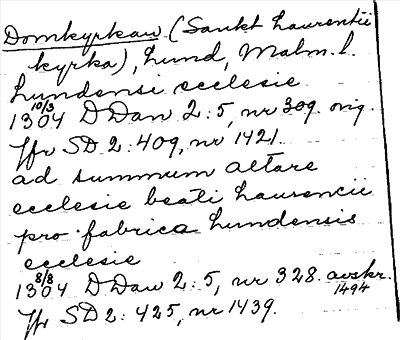 Domkyrkan (Sankt Laurentii
kyrka), Lund, Malm. l.
Lundensi ecclesie
10/3 1304 DDan 2:5, nr 309. orig.
Jfr SD 2:409, nr 1421.
ad summum altare
ecclesie beati Laurencii
pro fabrica Lundensis
ecclesie
8/8 1304 DDan 2:5, nr 328. avskr. 1494
Jfr SD 2:425, nr 1439.